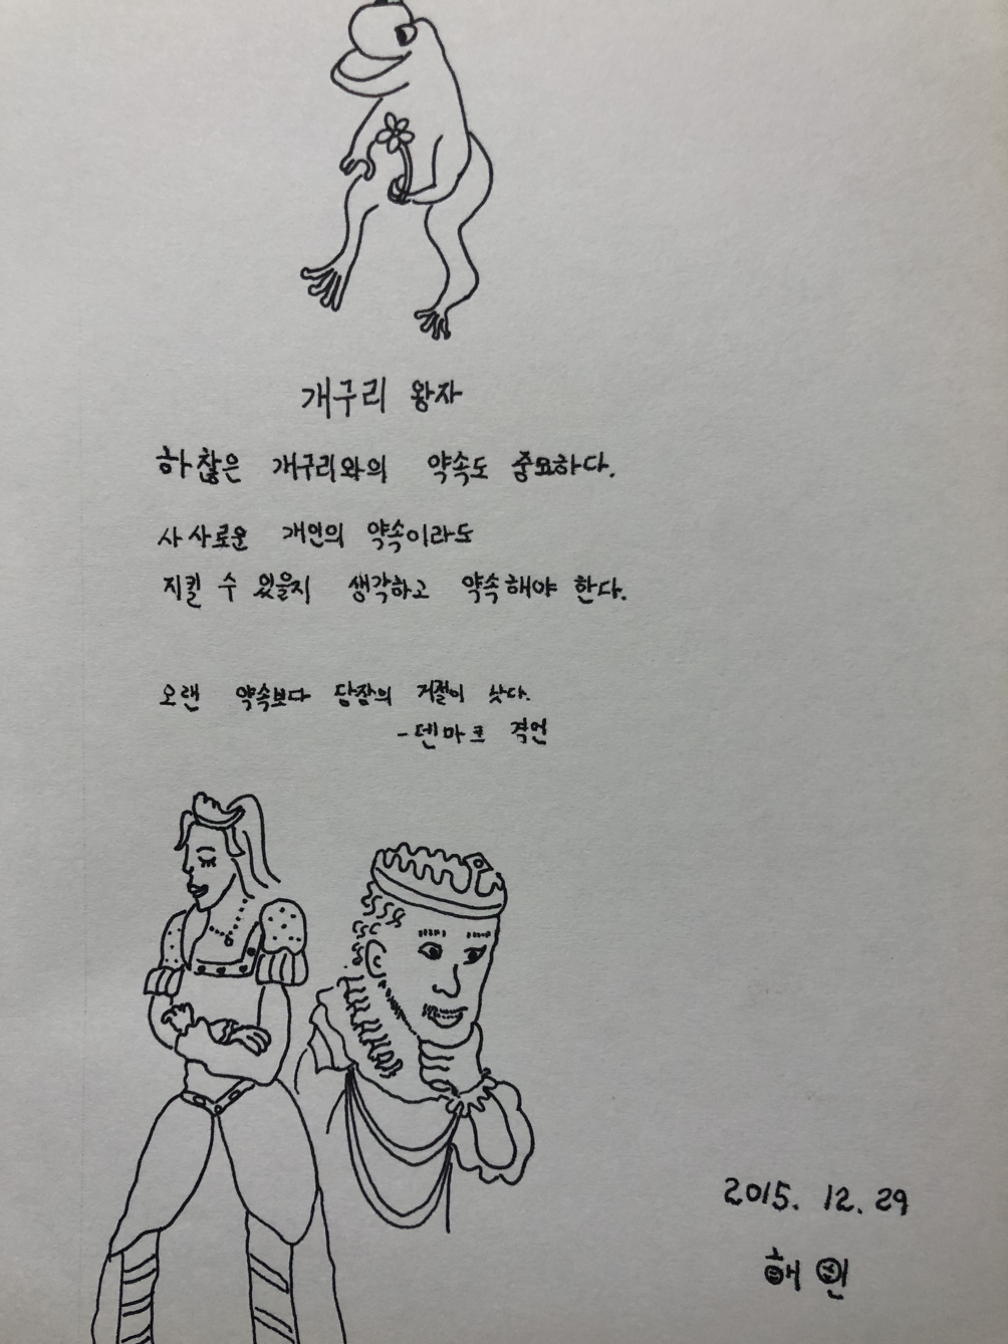 개구리 왕자
하찮은 개구리와의 약속도 중요하다.
사사로운 개인의 약속이라도
지킬 수 있을지 생각하고 약속해야 한다.
오랜 약속보다 당장의 거절이 낫다.
-덴마크 격언
2015. 12. 29
해인